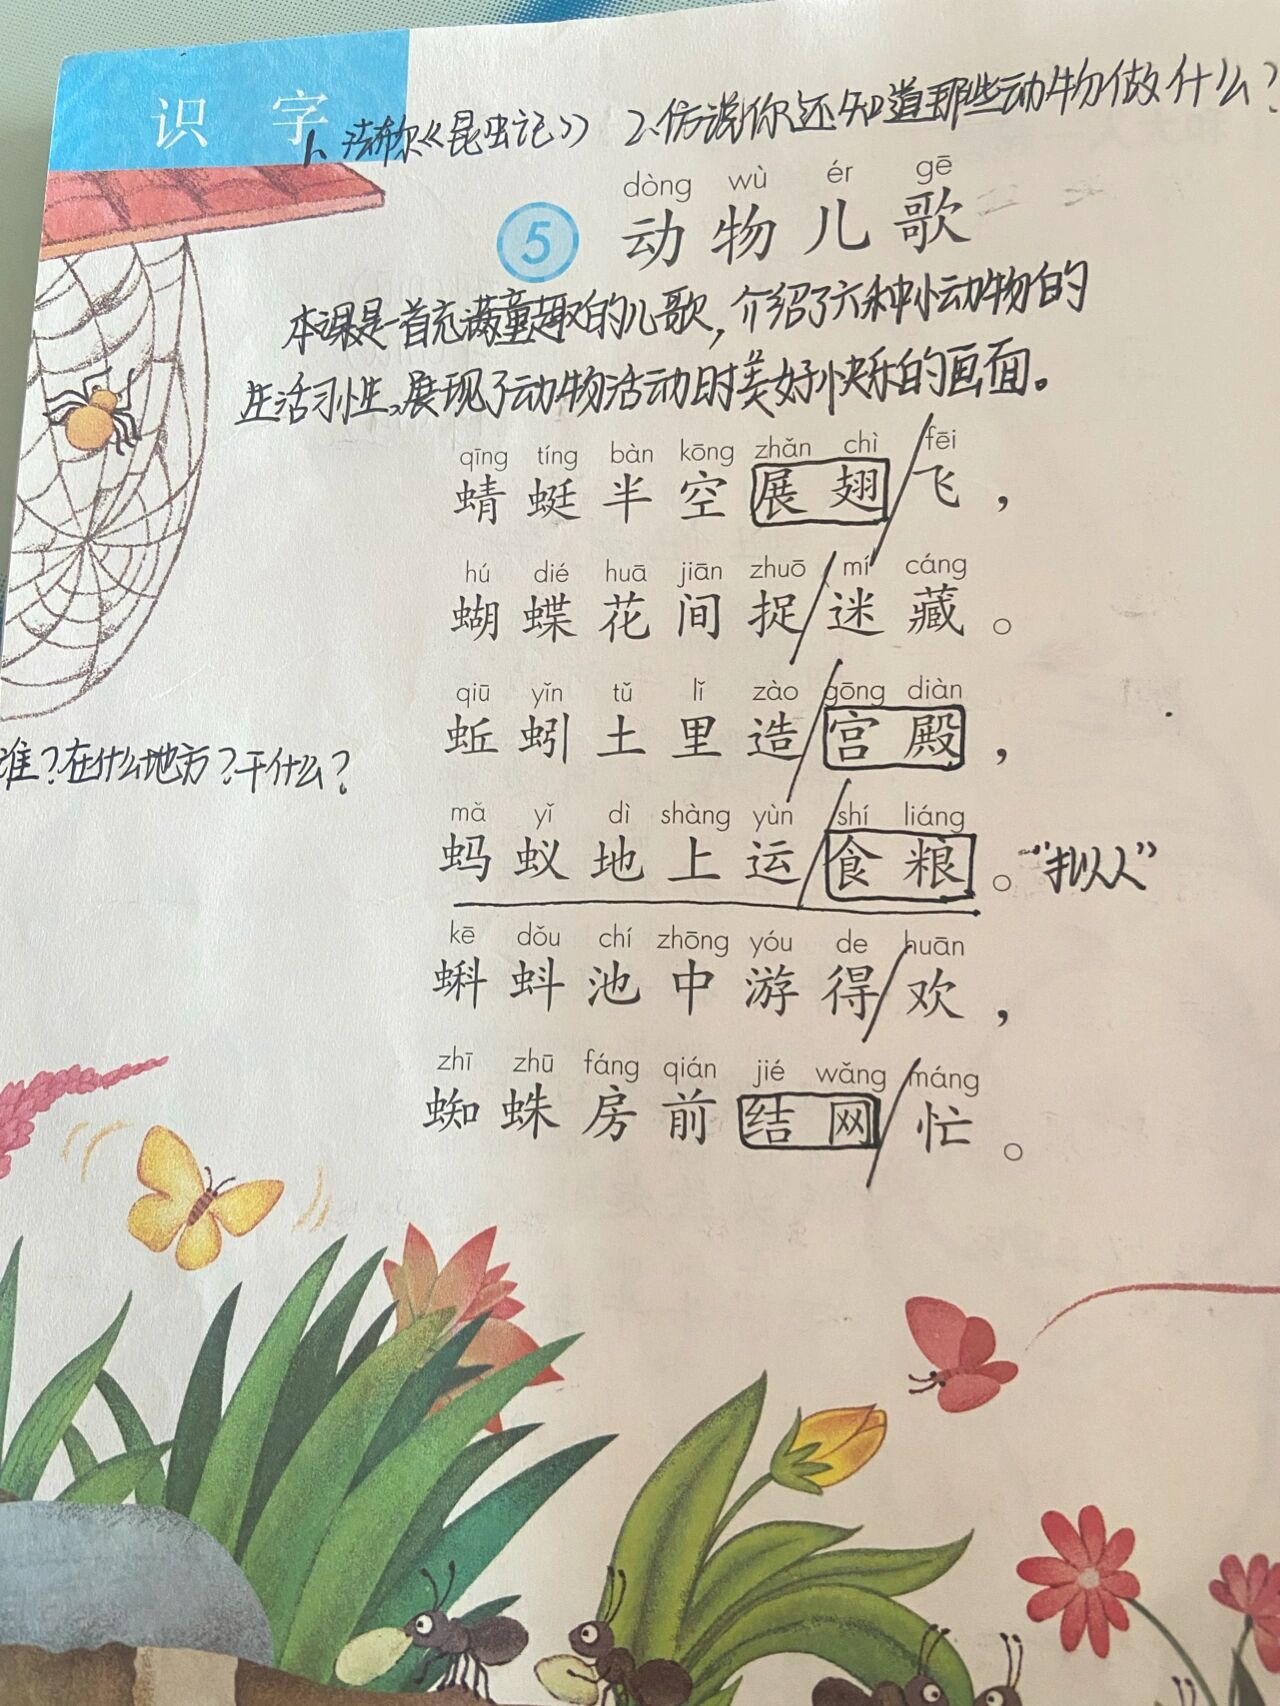 识字
1、法布尔《昆虫记》 2、仿说你还知道那些动物做什么？
dòng wù ér gē
5 动物儿歌
本课是一首充满童趣的儿歌，介绍了六种小动物的
生活习性，展现了动物活动时美好快乐的画面。
qīng tíng bàn kōng zhǎn chì fēi
蜻蜓半空展翅飞，
hú dié huā jiān zhuō mí cáng
蝴蝶花间捉迷藏。
qiū yǐn tǔ lǐ zào gōng diàn
蚯蚓土里造宫殿，
谁？在什么地方？干什么？
mǎ yǐ dì shàng yùn shí liáng
蚂蚁地上运食粮。“拟人”
kē dǒu chí zhōng yóu de huān
蝌蚪池中游得欢，
zhī zhū fáng qián jié wǎng máng
蜘蛛房前结网忙。